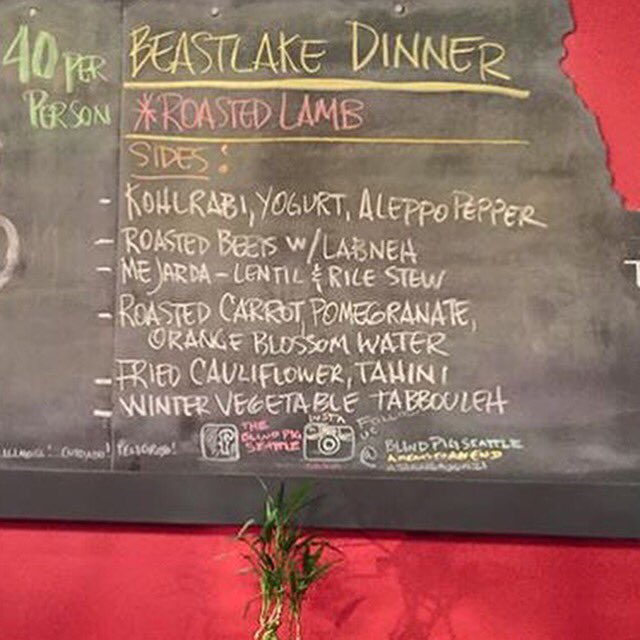 40 PER
PERSON
BEASTLAKE DINNER
*ROASTED LAMB
SIDES:
- KOHLRABI, YOGURT, ALEPPO PEPPER
- ROASTED BEETS W/LABNEH
- MEJARDA - LENTIL & RICE STEW
- ROASTED CARROT, POMEGRANATE,
ORANGE BLOSSOM WATER
- FRIED CAULIFLOWER, TAHINI
- WINTER VEGETABLE TABBOULEH
f
THE
BLIND PIG
SEATTLE
INSTA
FOLLOW
US
@ BLINDPIGSEATTLE
T